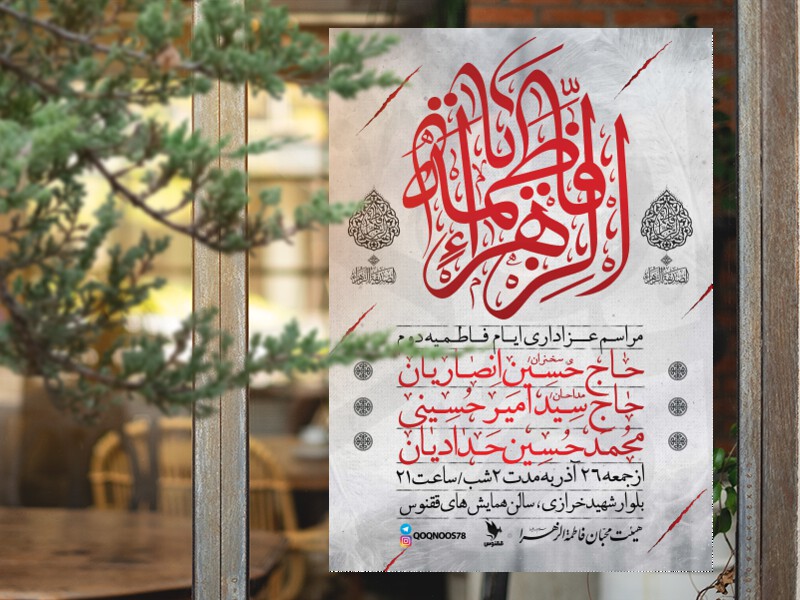 یا فاطمة الزهراء
مراسم عزاداری ایام فاطمیه دوم
سخنران
حاج حُسین انصاریان
مداحان
حاج سید امیر حسینی
محمد حسین حدادیان
از جمعه ۲۶ آذر به مدت ۲ شب / ساعت ۲۱
بلوار شهید خرازی، سالن همایش های ققنوس
هیئت محبان فاطمة الزهرا
ققنوس
QOQNOOS78